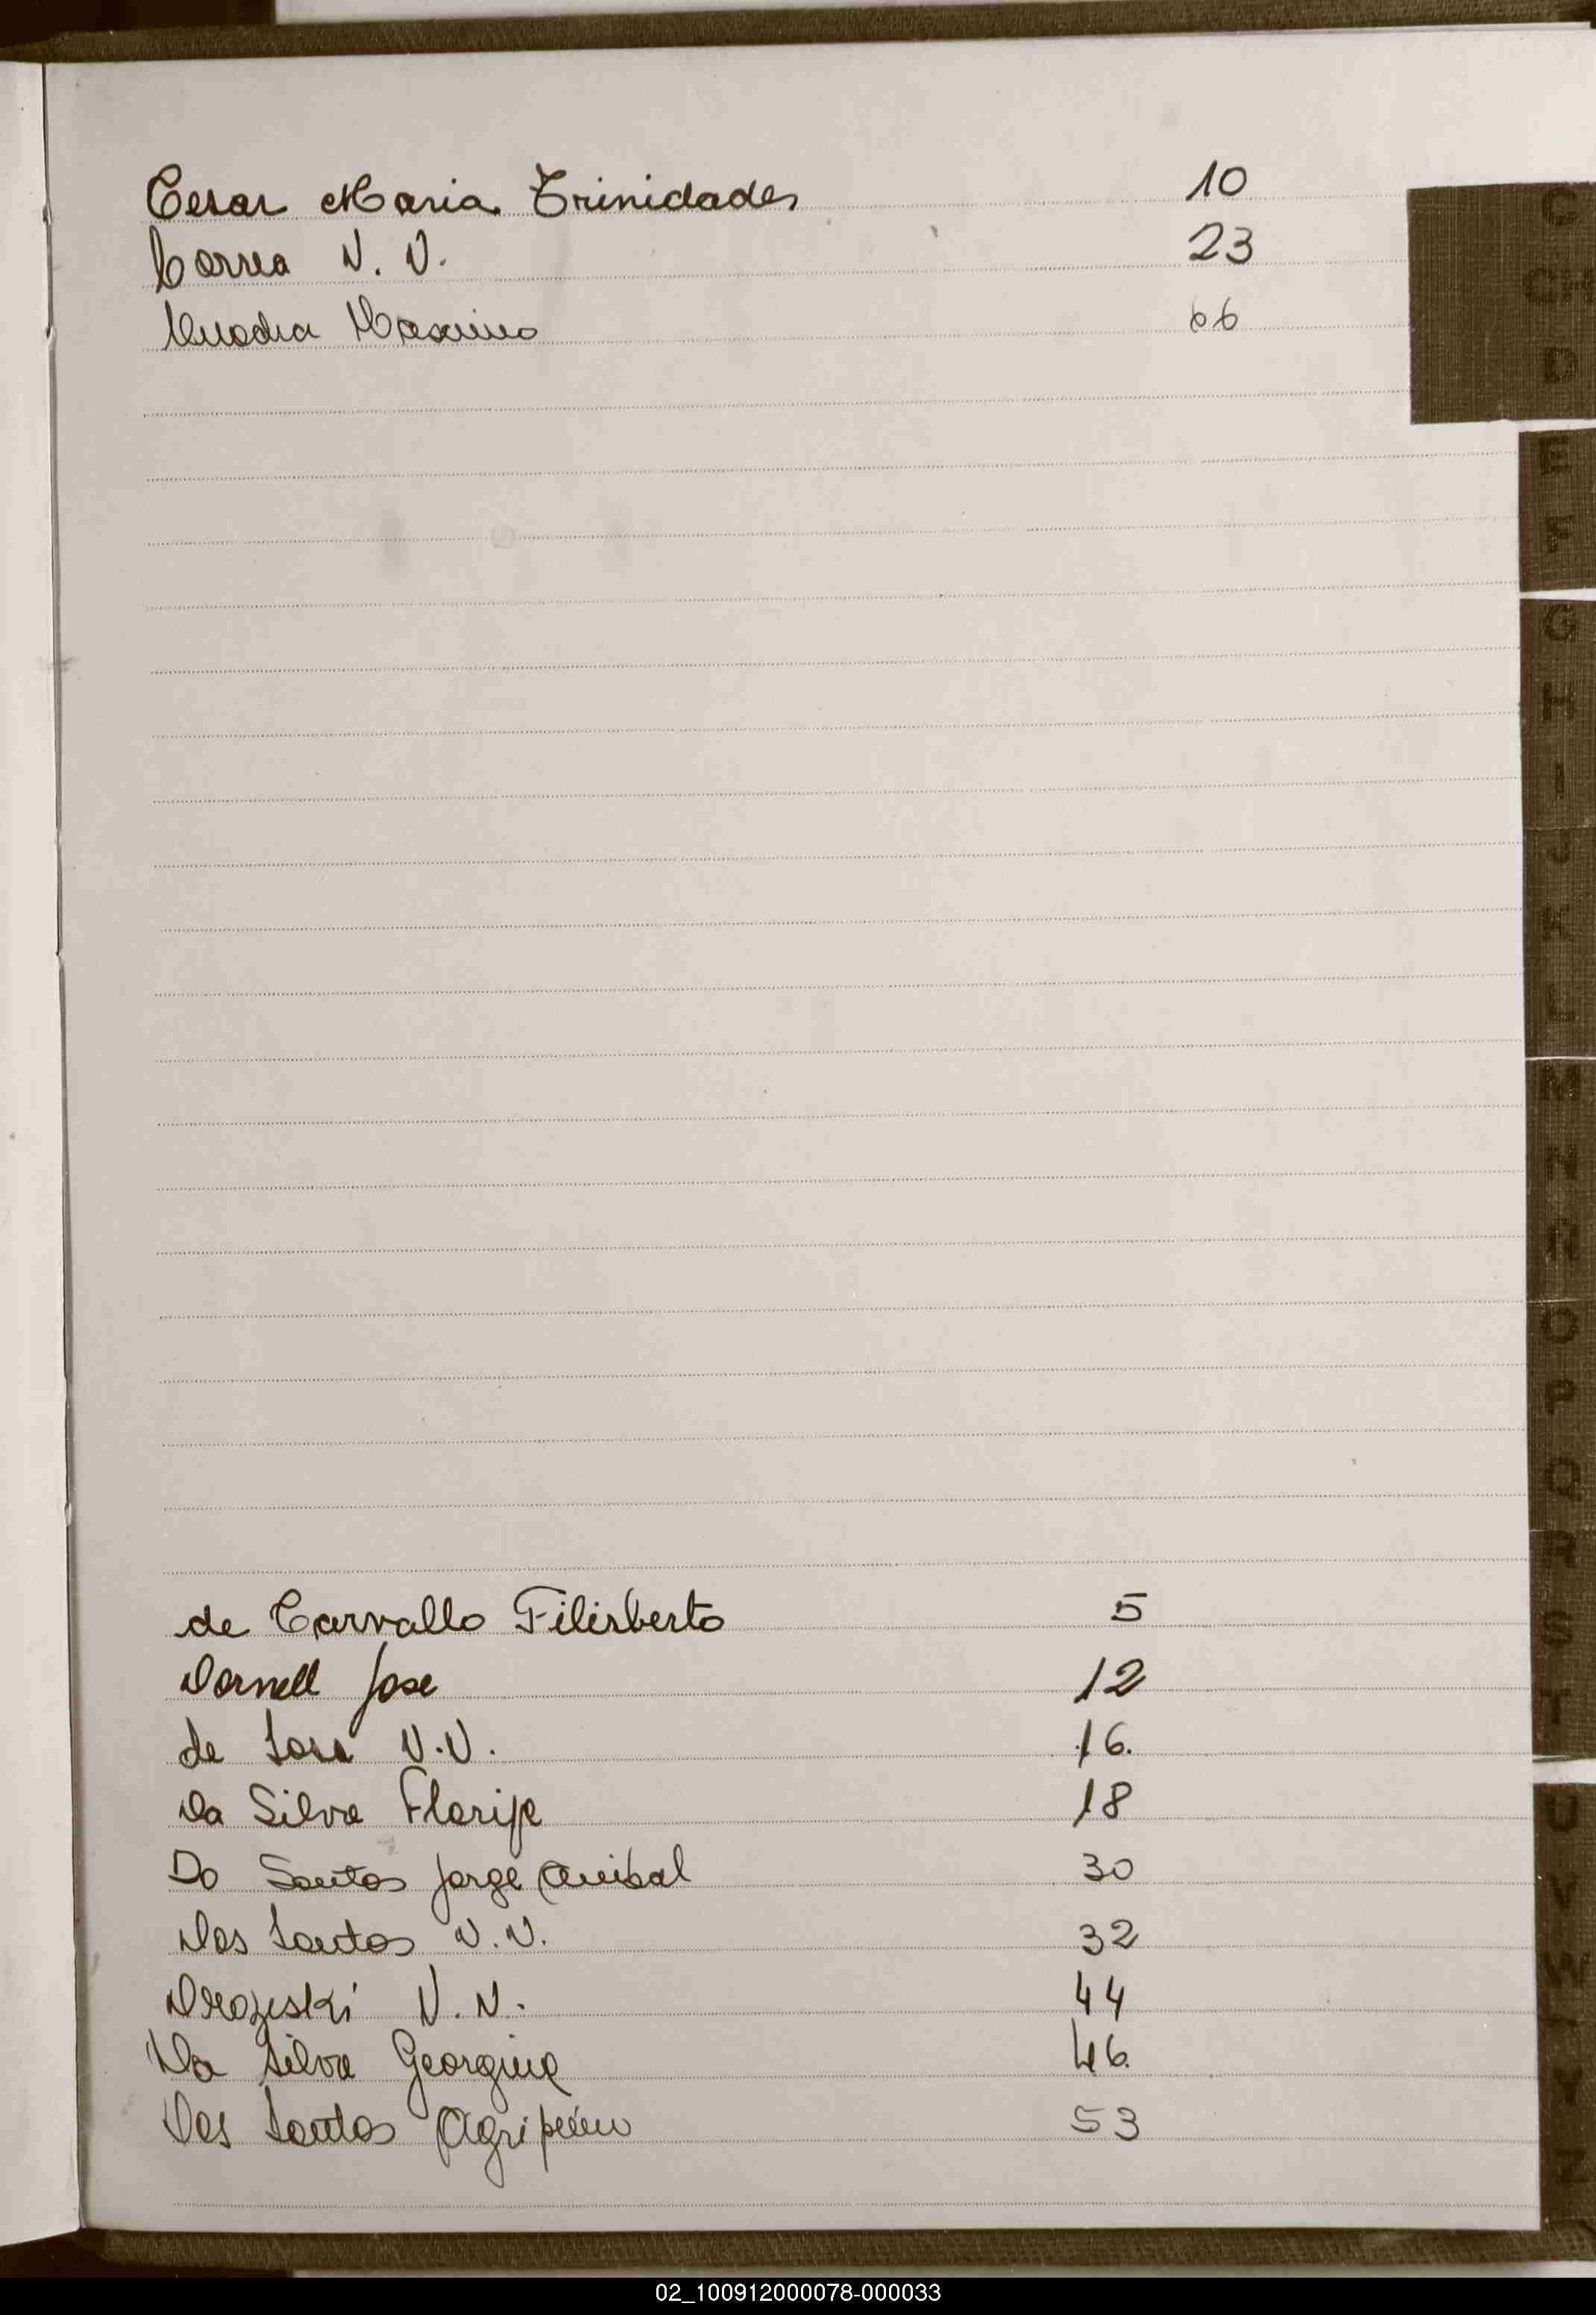 Cesar Maria Trinidades 10
Correa N.N. 23
Cuadra Maximo 66
de Carvallo Filisberto 5
Dornell Jose 12
de Sosa N.N. 16.
Da Silva Floripe 18
Do Santos Jorge Anibal 30
Dos Santos N.N. 32
Drozeski N.N. 44
Da Silva Georgina 46.
Dos Santos Agripino 53
C
CH
D
E
F
G
H
I
J
K
L
M
N
Ñ
O
P
Q
R
S
T
U
V
W
X
Y
Z
02_100912000078-000033